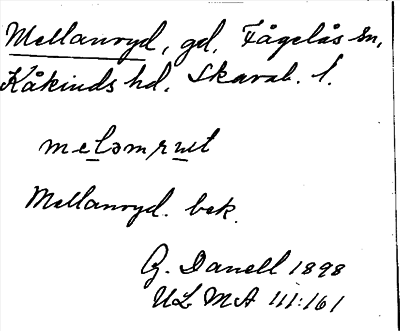 Mellanryd, gd, Fågelås sn,
Kåkinds hd, Skarab. l.
meləmrut
Mellanryd. bek.
G. Danell 1898
ULMA 111:161